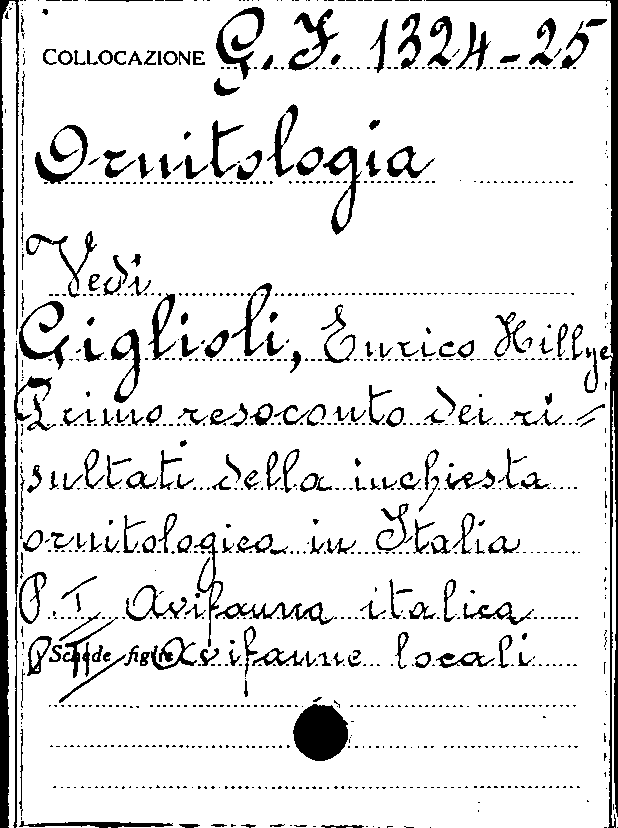 COLLOCAZIONE G. F. 1324-25
Ornitologia
Vedi
Giglioli, Enrico Hillye
Primo resoconto dei ri=
sultati della inchiesta
ornitologica in Italia
P. I Avifauna italica
P II Avifaune locali
Schede figlie